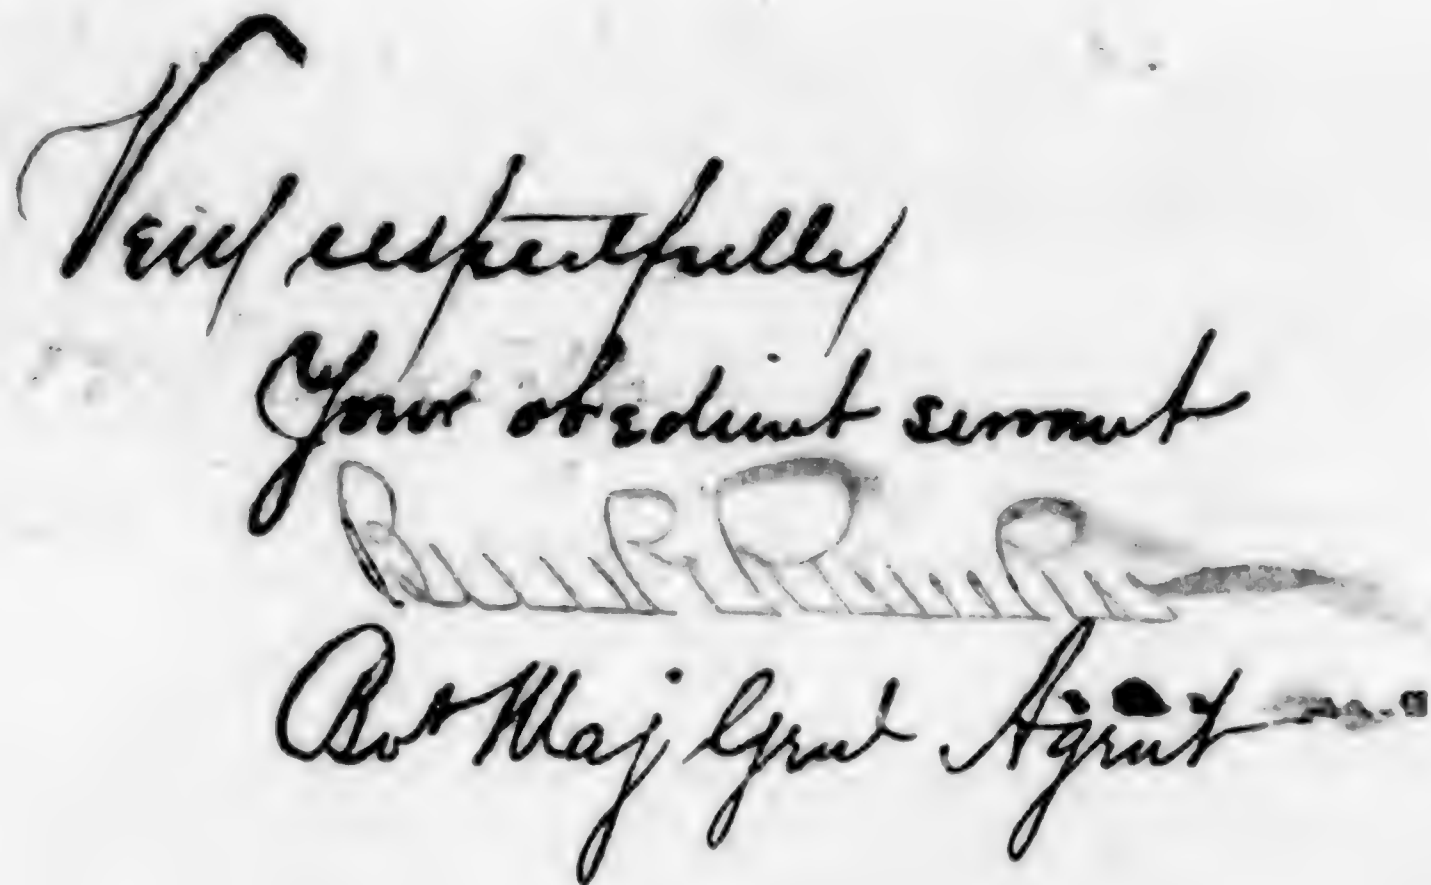 Very respectfully
Your obedient servant
Bvt Maj Genl Agent